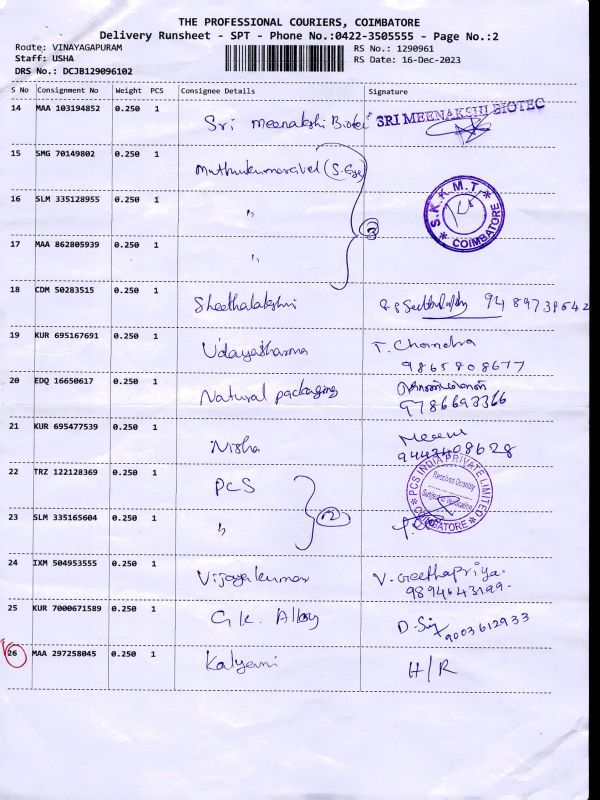 THE PROFESSIONAL COURIERS, COIMBATORE
Delivery Runsheet - SPT - Phone No.:0422-3505555 - Page No.:2
Route: VINAYAGAPURAM
Staff: USHA
DRS No.: DCJB129096102
RS No.: 1290961
RS Date: 16-Dec-2023
S No Consignment No Weight PCS Consignee Details Signature
14 MAA 103194852 0.250 1 Sri Meenakshi Biotec SRI MEENAKSHI BIOTEC
15 SMG 70149802 0.250 1 Muthukumaravel
16 SLM 335128955 0.250 1 " S.K.K.M.T COIMBATORE
17 MAA 862805939 0.250 1 "
3
18 CDM 50283515 0.250 1 Sheethalakshmi
19 KUR 695167691 0.250 1 Udayatharma T. Chandra
9865808677
20 EDQ 16650617 0.250 1 Natural packaging
9786693366
21 KUR 695477539 0.250 1 Nisha
9443408628
22 TRZ 122128369 0.250 1 PCS PCS INDIA PRIVATE LIMITED
Received Quantity
Subject to Verification
COIMBATORE
23 SLM 335165604 0.250 1 "
2
24 IXM 504953555 0.250 1 Vijayakumar V. Geethapriya.
9894643199.
25 KUR 7000671589 0.250 1 G.K. Alloy
9003612933
26 MAA 297258045 0.250 1 Kalyani H/R